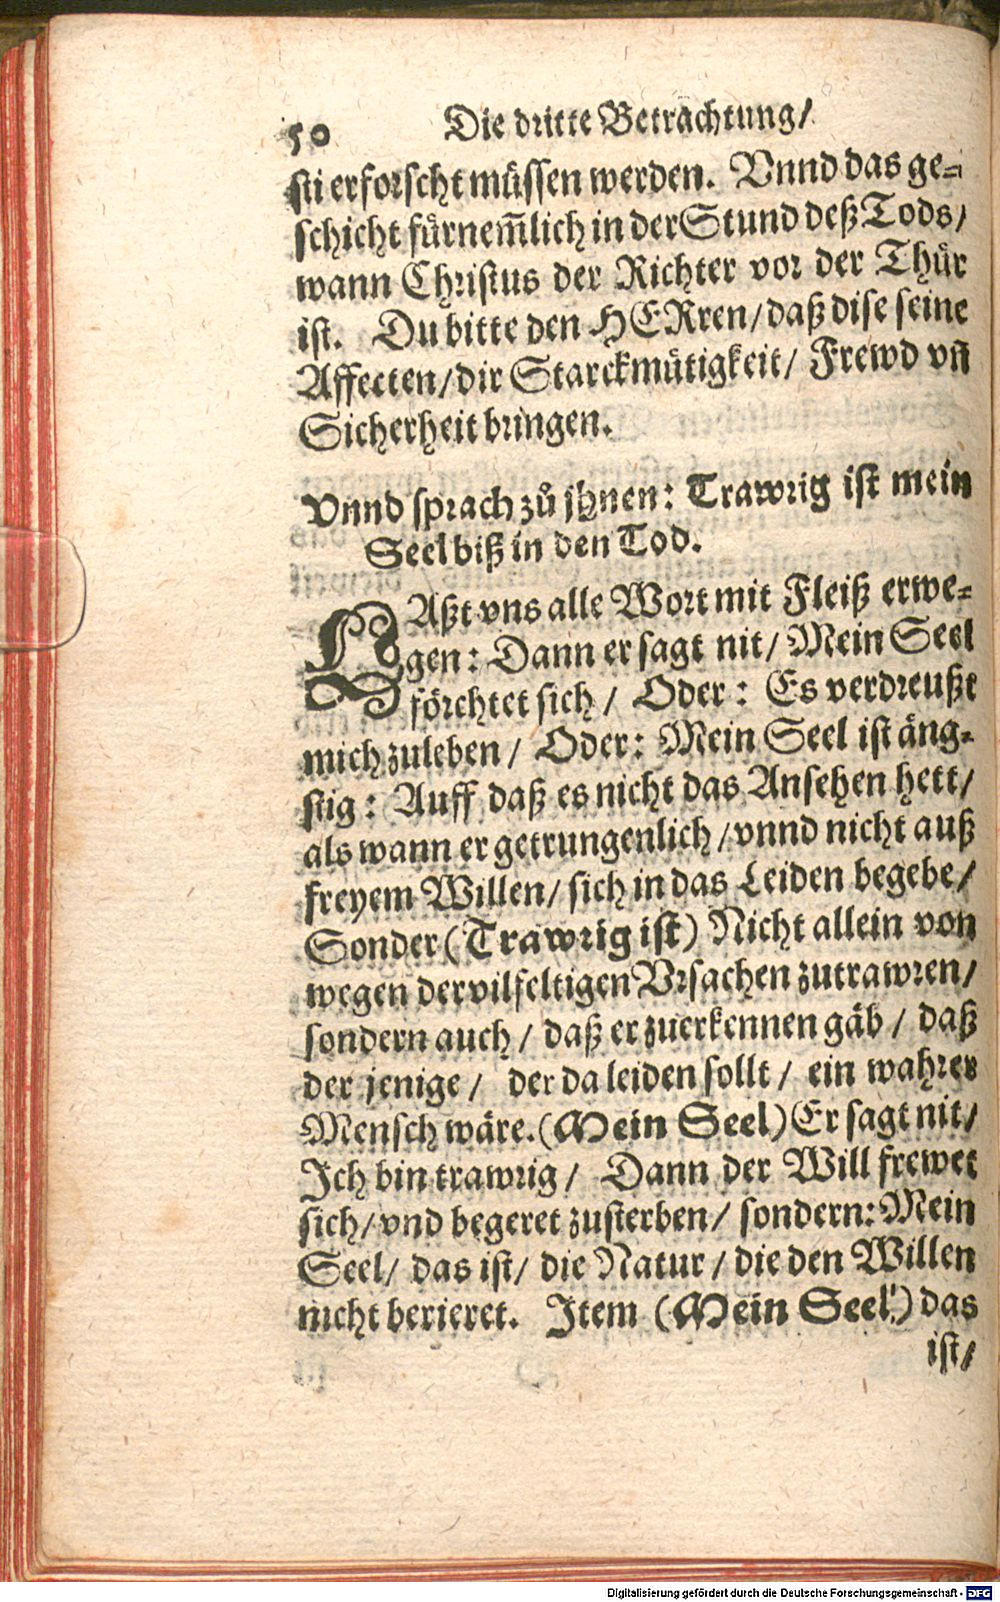 50 Die dritte Beträchtung/
sti erforscht müssen werden. Vnnd das ge-
schicht fürnem̃lich in der Stund deß Tods/
wann Christus der Richter vor der Thür
ist. Du bitte den HERren/daß dise seine
Affecten/dir Starckmütigkeit/ Frewd vñ
Sicherheit bringen.
Vnnd sprach zů jhnen: Trawrig ist mein
Seel biß in den Tod.
LAßt vns alle Wort mit Fleiß erwe-
gen: Dann er sagt nit/ Mein Seel
förchtet sich / Oder: Es verdreußt
mich zuleben / Oder: Mein Seel ist äng-
stig: Auff daß es nicht das Ansehen hett/
als wann er getrungenlich/vnnd nicht auß
freyem Willen/ sich in das Leiden begebe/
Sonder (Trawrig ist) Nicht allein von
wegen der vilfeltigen Vrsachen zutrawren/
sondern auch / daß er zuerkennen gäb / daß
der jenige / der da leiden sollt / ein wahrer
Mensch wäre. (Mein Seel) Er sagt nit/
Ich bin trawrig / Dann der Will frewet
sich/ vnd begeret zusterben/ sondern: Mein
Seel/ das ist/ die Natur / die den Willen
nicht berieret. Item (Mein Seel!) das
ist/
Digitalisierung gefördert durch die Deutsche Forschungsgemeinschaft - DFG